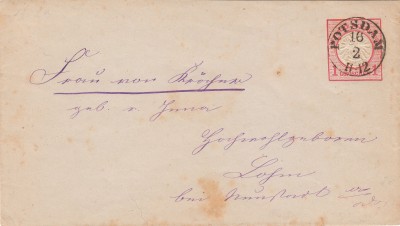 POTSDAM
16
2
11-12
Frau von Kröcher
geb. v.
Hochwohlgeboren
Lohm
bei Neustadt a/